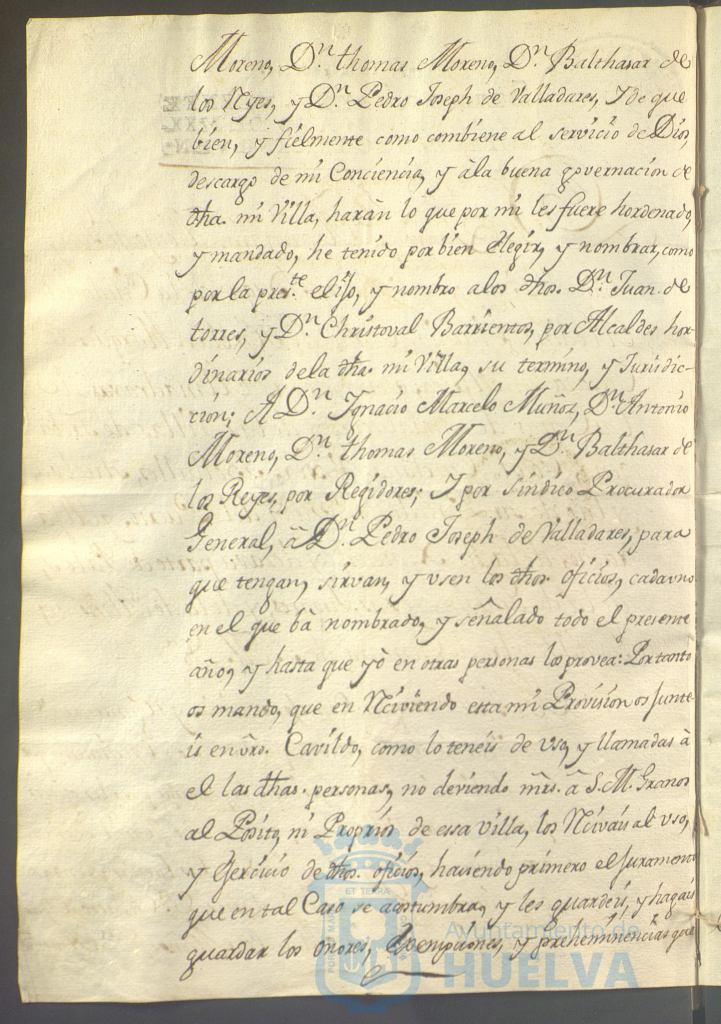 Moreno, Dn. thomas Moreno, Dn. Balthasar de
los Reyes, y Dn. Pedro Joseph de Valladares, Y de que
bien, y fielmente como combiene al servicio de Dios,
descargo de mi Conciencia, y à la buena governacion de
dha. mi Villa, haràn lo que por mi les fuere hordenado,
y mandado, he tenido por bien Elegir, y nombrar, como
por la preste. elijo, y nombro a los dhos. Dn. Juan de
torres, y Dn. Christoval Barrientos, por Alcaldes hor-
dinarios de la dha. mi Villa, su termino, y Jurisdic-
cion; A Dn. Ignacio Marcelo Muñoz, Dn. Antonio
Moreno, Dn. thomas Moreno, y Dn. Balthasar de
los Reyes, por Regidores; Y por sindico Procurador
General, â Dn. Pedro Joseph de Valladares, para
que tengan, sirvan, y usen los dhos. oficios, cada uno
en el que bà nombrado, y señalado todo el presente
año, y hasta que yò en otras personas los provea: Por tanto
os mando, que en Reciviendo esta mi Provision os junte-
is en vro. Cavildo, como lo teneis de uso, y llamadas à
el las dhas. personas, no deviendo mrs. â S. M. Granos
al Posito, ni Proprios de essa villa, los Recivais al uso,
y Exercicio de dhos. oficios, haciendo primero el juramento
que en tal Caso se acostumbra, y les guardeis, y hagais
guardar los onores, Exempciones, y preheminencias que
Ayuntamiento de
HUELVA